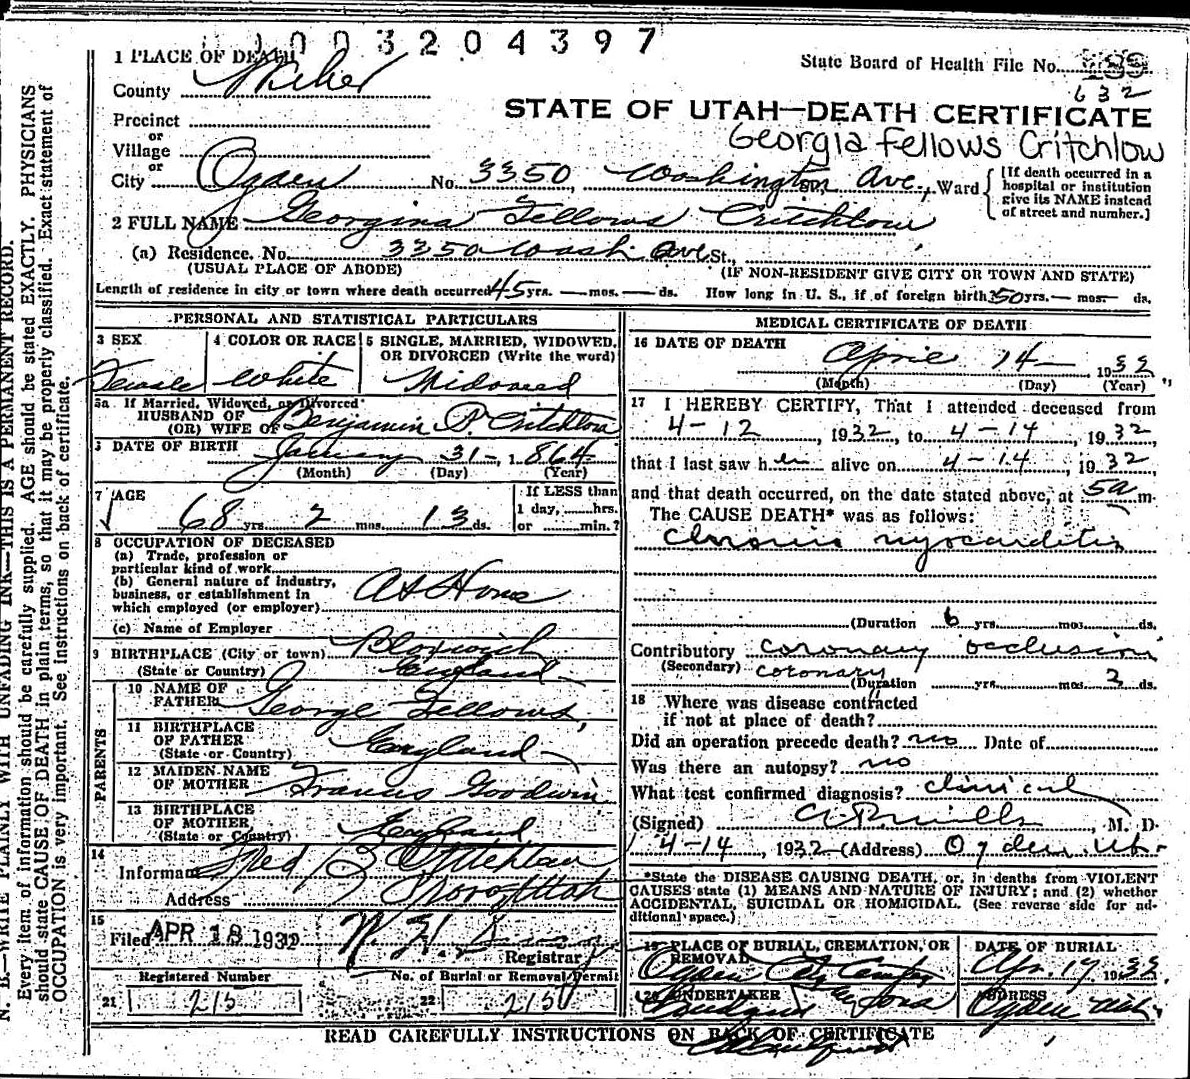 1003204397
1 PLACE OF DEATH
State Board of Health File No.
632
County Weber
STATE OF UTAH—DEATH CERTIFICATE
Precinct
or
Georgia Fellows Critchlow
Village
or
City Ogden No. 3350, Washington Ave., Ward
[If death occurred in a
hospital or institution
give its NAME instead
of street and number.]
2 FULL NAME Georgina Fellows Critchlow
(a) Residence. No. 3350 Wash Ave St.,
(USUAL PLACE OF ABODE)
(IF NON-RESIDENT GIVE CITY OR TOWN AND STATE)
Length of residence in city or town where death occurred 45 yrs. — mos. — ds. How long in U. S., if of foreign birth? 50 yrs. — mos. — ds.
PERSONAL AND STATISTICAL PARTICULARS
3 SEX
Female
4 COLOR OR RACE
White
5 SINGLE, MARRIED, WIDOWED,
OR DIVORCED (Write the word)
Widowed
5a If Married, Widowed, or Divorced
HUSBAND OF
(OR) WIFE OF Benjamin P. Critchlow
6 DATE OF BIRTH January 31 -, 1864
(Month) (Day) (Year)
7 AGE
68 yrs 2 mos. 13 ds.
If LESS than
1 day, hrs.
or min.?
8 OCCUPATION OF DECEASED
(a) Trade, profession or
particular kind of work
(b) General nature of industry,
business, or establishment in
which employed (or employer) At Home
(c) Name of Employer
9 BIRTHPLACE (City or town) Bloxwich
(State or Country) England
PARENTS
10 NAME OF
FATHER George Fellows,
11 BIRTHPLACE
OF FATHER
(State or Country) England
12 MAIDEN NAME
OF MOTHER Francis Goodwin
13 BIRTHPLACE
OF MOTHER,
(State or Country) England
14
Informant Fred B Critchlow
Address Provo, Utah
15
Filed APR 18 1932
Registrar
Registered Number
21 215
No. of Burial or Removal Permit
22 215
MEDICAL CERTIFICATE OF DEATH
16 DATE OF DEATH
April 14 — , 1932
(Month) (Day) (Year)
17 I HEREBY CERTIFY, That I attended deceased from
4-12, 1932, to 4-14, 1932,
that I last saw her alive on 4-14, 1932,
and that death occurred, on the date stated above, at 5a m.
The CAUSE DEATH* was as follows:
Chronic myocarditis
(Duration 6 yrs. mos. ds.
Contributory coronary occlusion
(Secondary) coronary
(Duration yrs. mos 2 ds.
18 Where was disease contracted
if not at place of death?
Did an operation precede death? no Date of
Was there an autopsy? no
What test confirmed diagnosis? clinical
(Signed) , M. D.
4-14, 1932 (Address) Ogden, Ut.
*State the DISEASE CAUSING DEATH, or, in deaths from VIOLENT
CAUSES state (1) MEANS AND NATURE OF INJURY; and (2) whether
ACCIDENTAL, SUICIDAL OR HOMICIDAL. (See reverse side for ad-
ditional space.)
19 PLACE OF BURIAL, CREMATION, OR
REMOVAL
Ogden City Cemetery
DATE OF BURIAL
Apr. 17 1932
20 UNDERTAKER
ADDRESS
Ogden Utah
READ CAREFULLY INSTRUCTIONS ON BACK OF CERTIFICATE
N. B.—WRITE PLAINLY WITH UNFADING INK—THIS IS A PERMANENT RECORD.
Every item of information should be carefully supplied. AGE should be stated EXACTLY. PHYSICIANS
should state CAUSE OF DEATH in plain terms, so that it may be properly classified. Exact statement of
OCCUPATION is very important. See instructions on back of certificate.